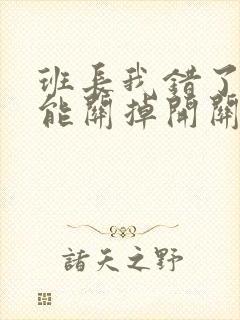 班长我错了
能關掉開關
諸天之野